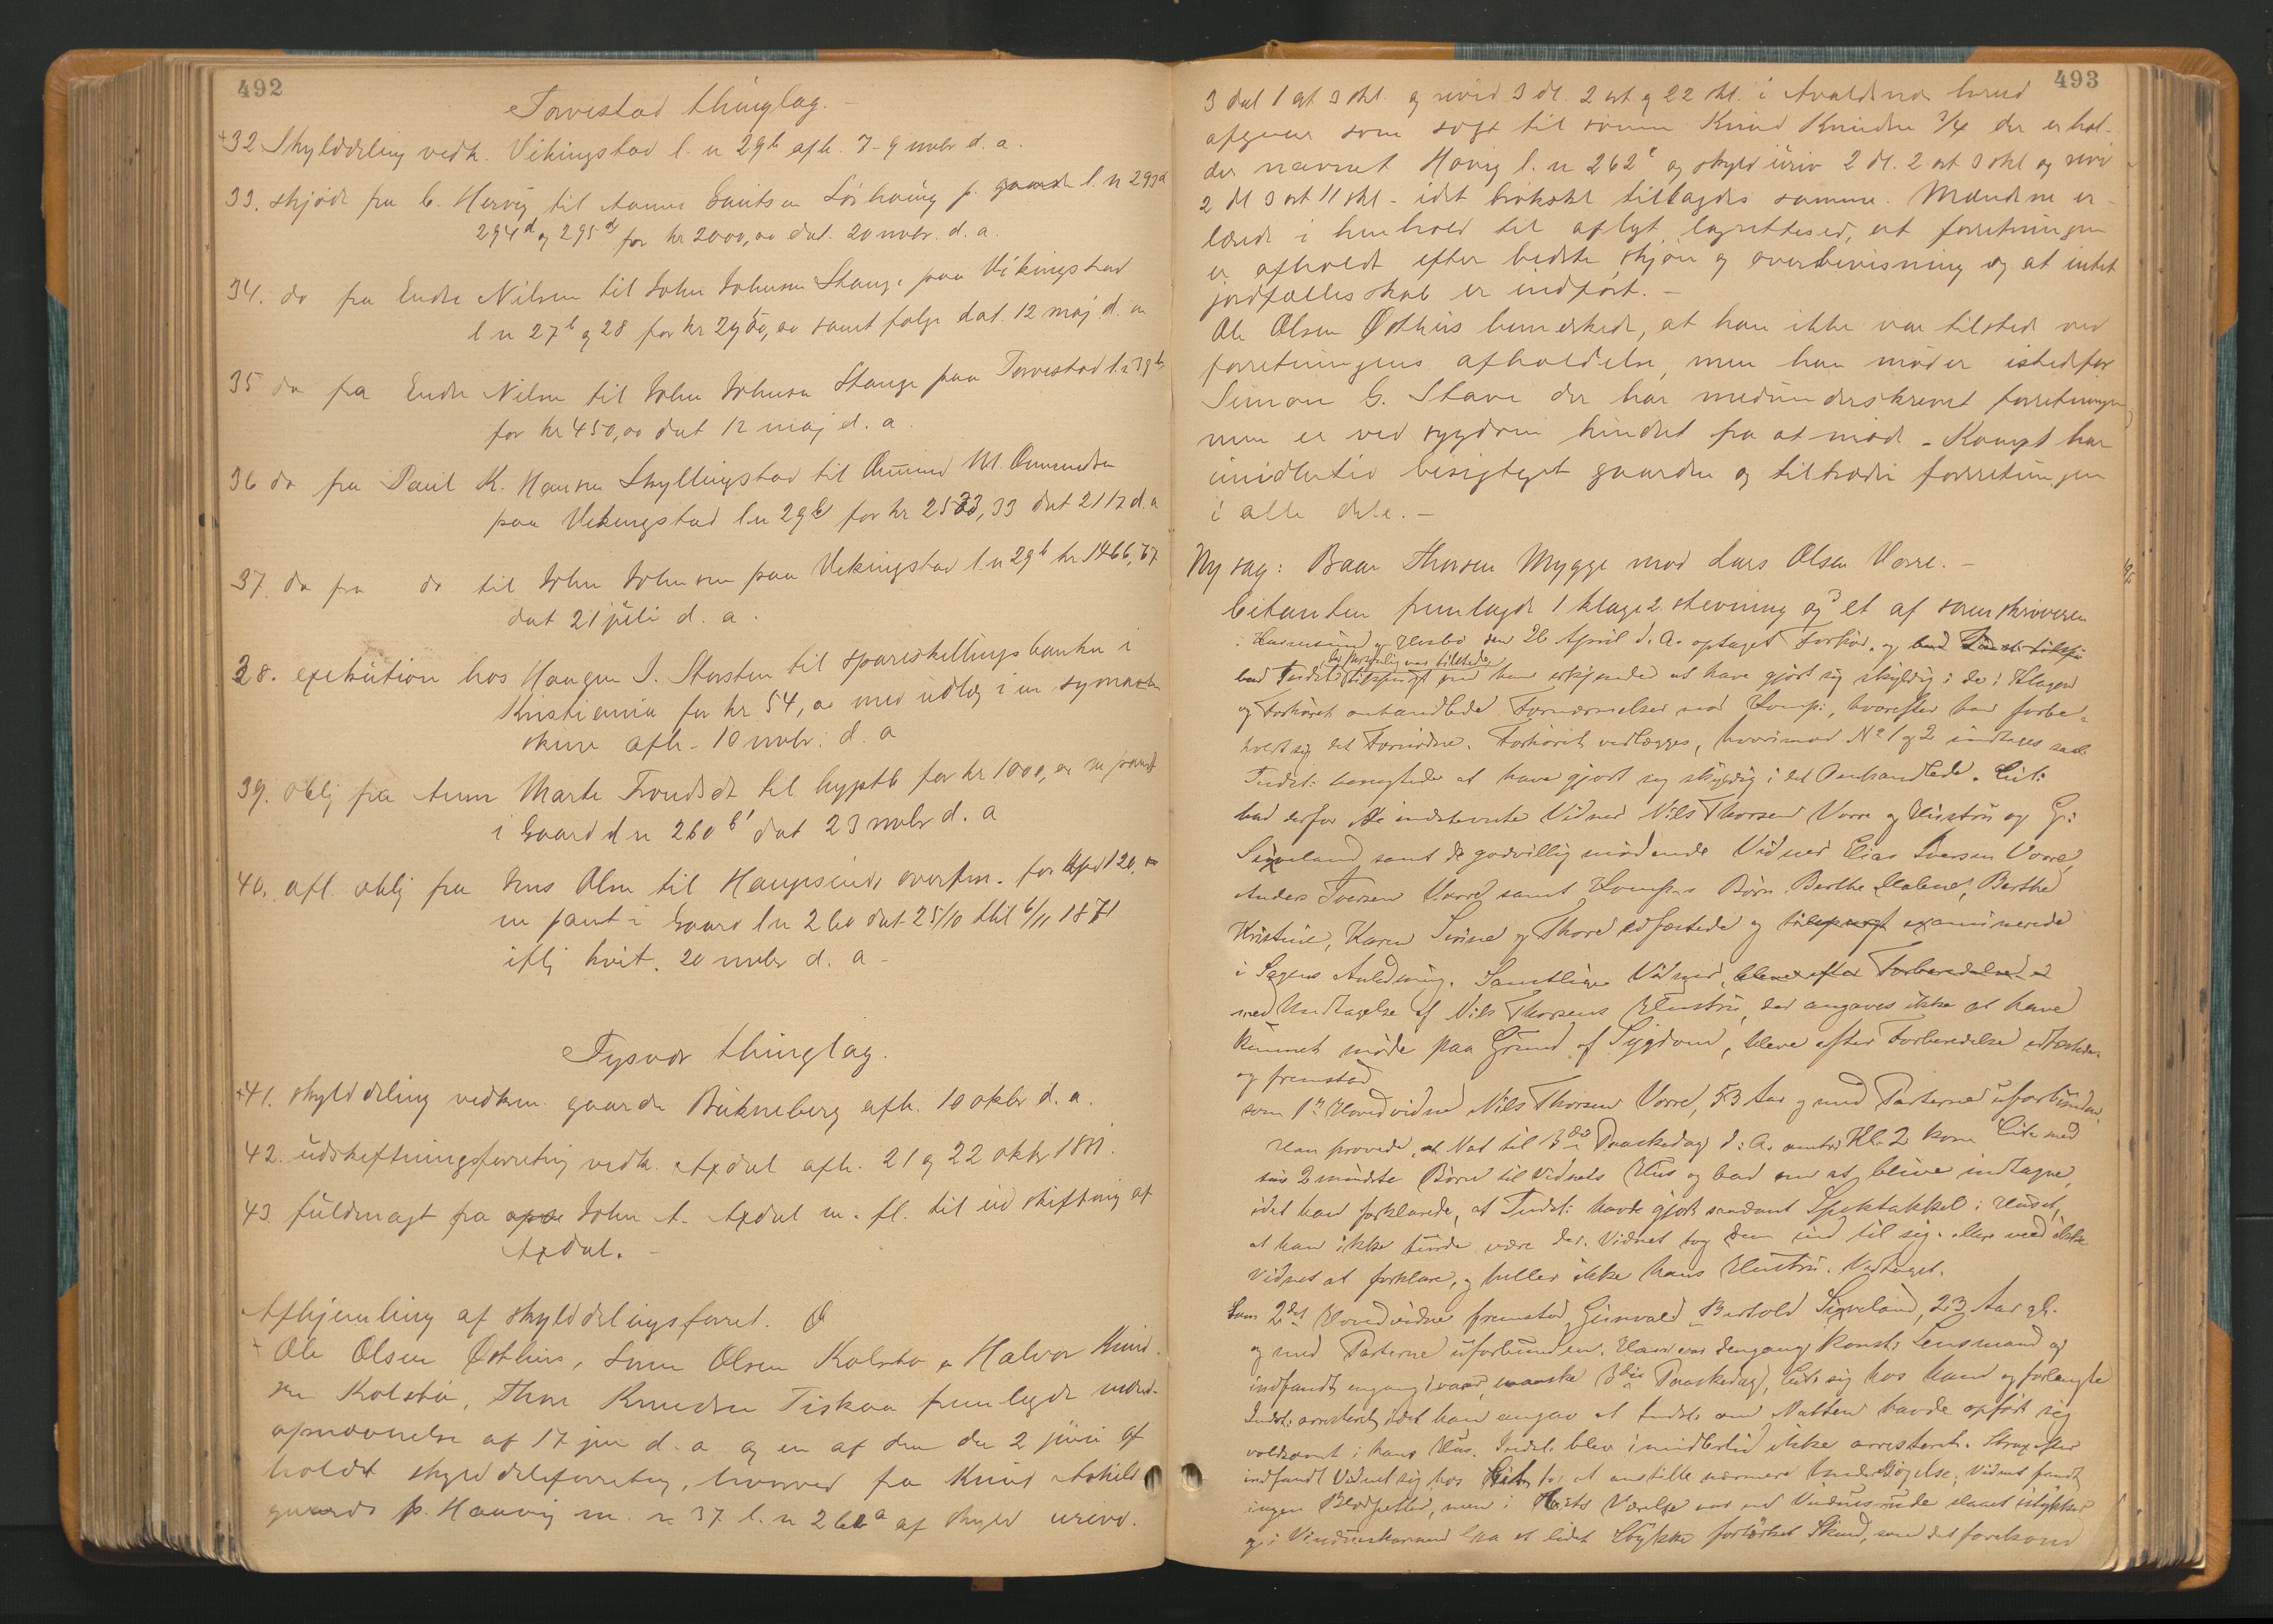 492
Torvestad thinglag. -
+32 Skylddeling vedk. Vikingstad l. n 29b afh. 7-9 novbr d. a.
33. skjøde fra C. Hervig til Gautsen Sørhaüg p. gaarde l. n 293d
294d og 295d for kr 2000,00 dat. 20 novbr. d. a.
34. do fra Endre Nilsen til John Johnsen Stange paa Vikingstad
l n 27b og 28 for kr 2950,00 samt følge dat. 12 maj d. a
35 do fra Endre Nilsen til John Johnsen Stange paa Torvestad l. n 39b
for kr 450,00 dat 12 maj d. a.
36 do fra Paül K. Hansen Skyllingstad til Omund M. Omundsen
paa Vikingstad l n 29b for kr 2533,33 dat 21/7 d. a
37. do fra do til John Johnsen paa Vikingstad l. n 29b kr 1466,67
dat 21 jüli d. a.
38. exekütion hos Haugen I. Storsten til spareskillingsbanken i
Kristiania for kr 54,00 med üdlæg i en symaskine
afh. 10 novbr. d. a
39. oblig fra Anne Marte Trondsdt til hyptb for kr 1000,00 m pant
i Gaard l n 260 b1 dat 23 novbr d. a
40. afl. oblig fra Jens Olsen til Haugesünds overfm. for spd 120,
m pant i Gaard l n 260 dat 25/10 thl 6/11 1871
iflg kvit. 20 novbr d. a -
Tysvær thinglag.
+41. skylddeling vedkm. gaarde Bükneberg afh. 10 oktbr d. a.
42. üdskiftningsforretning vedk. Axdal afh. 21 og 22 oktbr 1881.
43. füldmagt fra John A. Axdal m. fl. til üdskiftning af
Axdal. -
Afhjemling af skylddelingsforret.
Ole Olsen Østhüs, Olsen Kolstø, Halvor Knüd-
sen Kolstø, Thore Knudsen Tiskaa fremlagde
opnævnelse af 17 d. a og en af dem den 2 jüni af
holdt skylddelsforretning, hvorved fra Knud
gaarde p. Haavig m. n 37 l. n 262a af skyld
493
3 dal 1 ort 3 skl. og revid 3 dl. 2 ort og 22 skl. i Avaldsnes herred
afgaar som solgt til sønnen Knüd Knüdsen 3/4 der er kal-
der nævnet Hovig l. n 262c og skyld ürev 2 dl. 2 ort 3 skl og revi
2 dl 3 ort 11 skl - idet brøkskl tillagdes samme. Mændene er-
lærede i henhold til aflagt lagrettesed, at forretningen
er afholdt efter bedste skjøn og overbevisning og at intet
jordfællesskab er indført. -
Ole Olsen Østhüs bemærkede, at han ikke var tilstede ved
forretningens afholdelse, men han møder istedetfor
Simon G. Stave der har medünderskrevet forretningen,
men er ved sygdom hindret fra at møde. - Kompt har
imidlertid besigtiget gaarden og tiltræder forretningen
i alle dele. -
Ny sag: Baar Thorsen Mygge mod Lars Olsen Vorre. -
Citanten fremlagde 1 klage 2 stevning og 3 et af sorenskriveren
i den 26 April d. A. optaget Forhør, og
bad Indst: der personlig var tilstede, tilspurgt om han erkjendte at have gjort sig skyldig i de i Klagen
og Forhøret omhandlede Fornærmelser mod Komp:, hvorefter han forbe-
holdt sig det Fornødne. Forhøret vedlægges, hvorimod No 1 og 2 indtages saal.
Indst: benægtede at have gjort sig skyldig i det Omhandlede. Cit:
bad derfor de indstevnte Vidner Nils Thorsen Vorre og Hustru og G:
Sigveland samt de godvillig mødende Vidner Elias Iversen Vorre,
Anders Iversen Vorre samt Komp:s Børn Berthe Malene, Berthe
Kristine, Karen Serine og Thore edfæstede og tilspurgt examinerede
i Sagens Anledning. Samtlige Vidner, bleve efter Forberedelse
med Undtagelse af Nils Thorsens Hustru, der angaves ikke at have
kunnet møde paa Grund af Sygdom, bleve efter Forberedelse edfæstede
og fremstod
som 1ste Hovedvidne Nils Thorsen Vorre, 53 Aar og med Parterne uforbunden.
Han provede, at Nat til 3die Paaskedag d: A. omtr. Kl. 2 kom Cit: med
sine 2 mindste Børn til Vidnets Hus og bad om at blive indtagne,
idet han forklarede, at Indst: havde gjort saadant Spektakkel i Huset,
at han ikke turde være der. Vidnet tog dem ind til sig. Mere veed ikke
Vidnet at forklare, og heller ikke hans Hustru. Vedtaget.
Som 2det Hovedvidne fremstod Gunvald Bertold Sigveland, 23 Aar gl.
og med Parterne uforbunden. Han var dengang konst. Lensmand og
indfandt engang, maaske 3die Paaskedag, Cit: sig hos ham og forlangte
Indst: arresteret, idet han angav at Indst: om Natten havde opført sig
voldsomt i hans Hus. Indst: blev imidlertid ikke arresteret. Strax efter
indfandt Vidnet sig hos Cit: for at anstille nærmere Undersøgelse; Vidnet fandt
ingen Blodpletter, men i Værelse var en Vinduesrude slaaet istykker
og i Vindueskarmen laa et lidet Stykke fortørket Skind, som det forekom